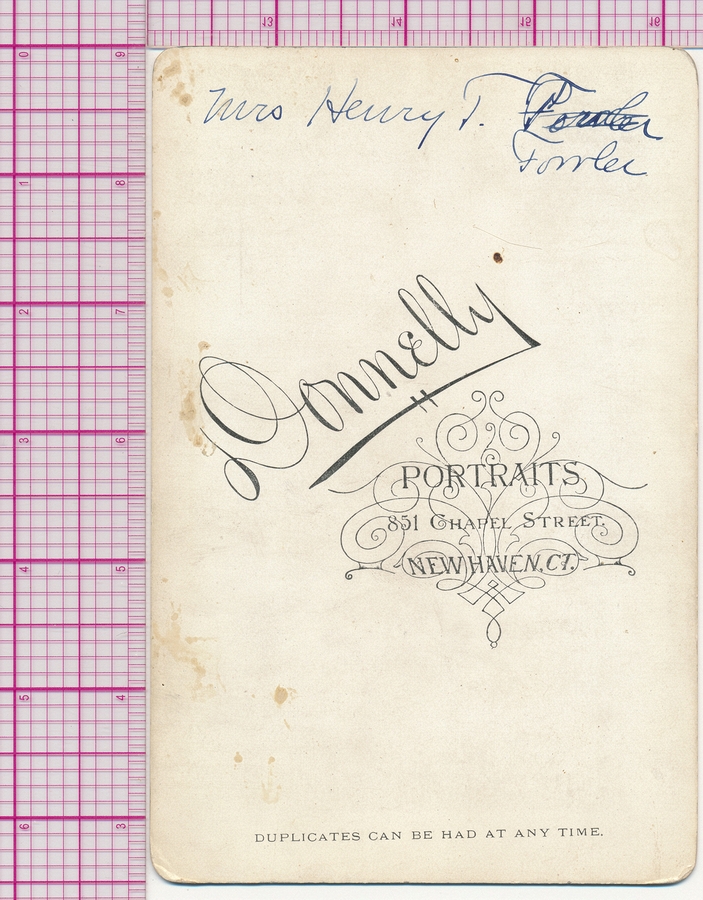 13 14 15 16
0 9
1 8
2 7
3 6
4 5
5 4
6 3
Mrs Henry T. Fowler
Fowler
Donnelly
PORTRAITS
851 CHAPEL STREET.
NEW HAVEN, CT.
DUPLICATES CAN BE HAD AT ANY TIME.